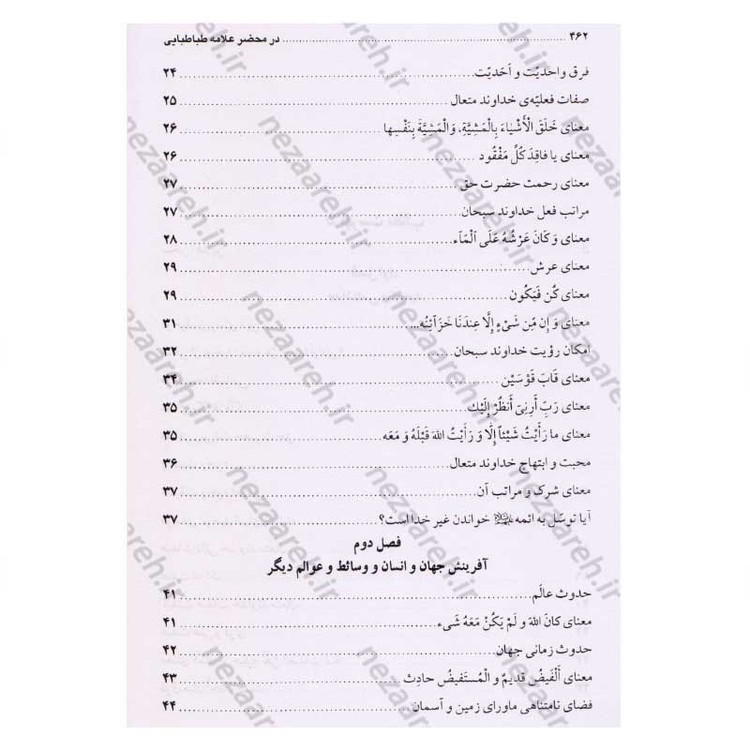 ۴۶۲ ........ در محضر علامه طباطبایی
فرق واحدیّت و اَحَدیّت ........ ۲۴
صفات فعلیّه‌ی خداوند متعال ........ ۲۵
معنای خَلَقَ الْأَشْیاءَ بِالْمَشِیَّةِ، وَالْمَشِیَّةَ بِنَفْسِها ........ ۲۶
معنای یا فاقِدَ کُلِّ مَفْقُود ........ ۲۶
معنای رحمت حضرت حق ........ ۲۷
مراتب فعل خداوند سبحان ........ ۲۷
معنای وَ کَانَ عَرْشُهُ عَلَی الْمَآءِ ........ ۲۸
معنای عرش ........ ۲۹
معنای کُن فَیَکُون ........ ۲۹
معنای وَ إِن مِّن شَیْءٍ إِلَّا عِندَنَا خَزَآئِنُه... ........ ۳۱
امکان رؤیت خداوند سبحان ........ ۳۲
معنای قَابَ قَوْسَیْن ........ ۳۴
معنای رَبِّ أَرِنِیٓ أَنظُرْ إِلَیْك ........ ۳۵
معنای ما رَأَیْتُ شَیْئاً إِلَّا وَ رَأَیْتُ اللهَ قَبْلَهُ وَ مَعَه ........ ۳۵
محبت و ابتهاج خداوند متعال ........ ۳۶
معنای شرک و مراتب آن ........ ۳۷
آیا توسّل به ائمه خواندن غیر خدا است؟ ........ ۳۷
فصل دوم
آفرینش جهان و انسان و وسائط و عوالم دیگر
حدوث عالَم ........ ۴۱
معنای کانَ اللهُ وَ لَمْ یَکُنْ مَعَهُ شَیء ........ ۴۱
حدوث زمانی جهان ........ ۴۲
معنای أَلْفَیضُ قَدیمٌ و الْمُسْتَفیضُ حادِث ........ ۴۳
فضای نامتناهی ماورای زمین و آسمان ........ ۴۴
nezaareh.ir